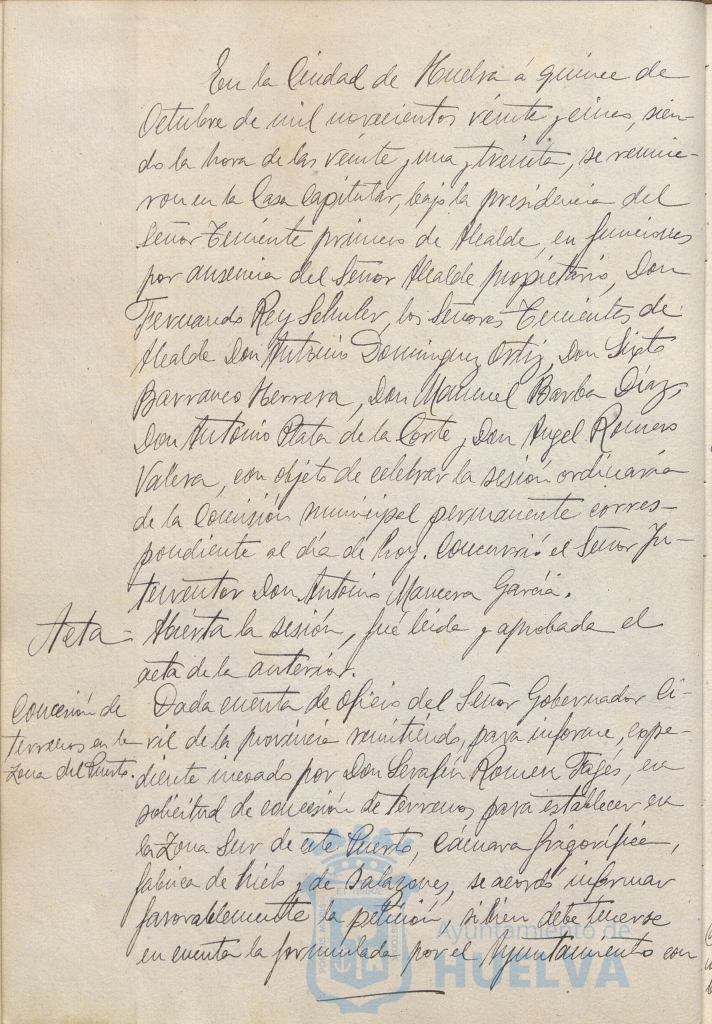 En la Ciudad de Huelva á quince de
Octubre de mil novecientos veinte y cinco, sien-
do la hora de las veinte y una y treinta, se reunie-
ron en la Casa Capitular, bajo la presidencia del
Señor Teniente primero de Alcalde, en funciones
por ausencia del Señor Alcalde propietario, Don
Fernando Rey Schuler, los Señores Tenientes de
Alcalde Don Antonio Dominguez Ortiz, Don Sixto
Barranco Herrera, Don Manuel Barba Díaz,
Don Antonio Plata de la Corte y Don Angel Romero
Valera, con objeto de celebrar la sesión ordinaria
de la Comisión municipal permanente corres-
pondiente al día de hoy. Concurrió el Señor In-
terventor Don Antonio Mancera García.
Acta = Abierta la sesión, fué leida y aprobada el
acta de la anterior.
Concesión de
terrenos en la
Zona del Puerto.
Dada cuenta de oficio del Señor Gobernador Ci-
vil de la provincia remitiendo, para informe, expe-
diente incoado por Don Serafín Romeu Fagés, en
solicitud de concesión de terrenos para establecer en
la Zona Sur de este Puerto, cámara frigorífica,
fabrica de hielo y de Salazones, se acordó informar
favorablemente la petición, si bien debe tenerse
en cuenta la formulada por el Ayuntamiento con
Ayuntamiento de
HUELVA